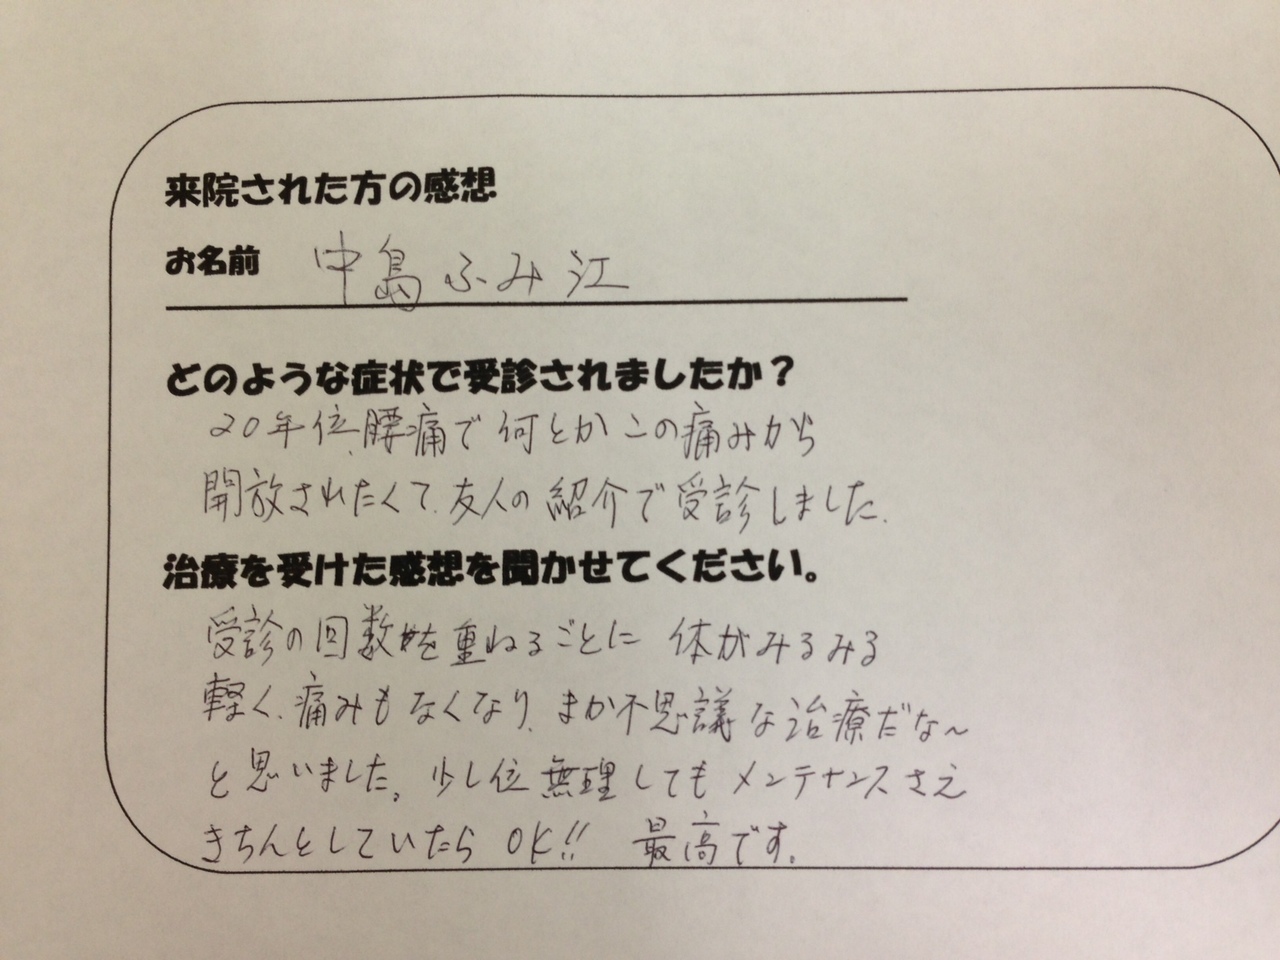 来院された方の感想
お名前 中島ふみ江
どのような症状で受診されましたか?
20年位、腰痛で何とかこの痛みから
開放されたくて、友人の紹介で受診しました。
治療を受けた感想を聞かせてください。
受診の回数を重ねるごとに 体がみるみる
軽く、痛みもなくなり、まか不思議な治療だな〜
と思いました。少し位無理してもメンテナンスさえ
きちんとしていたら OK!! 最高です。